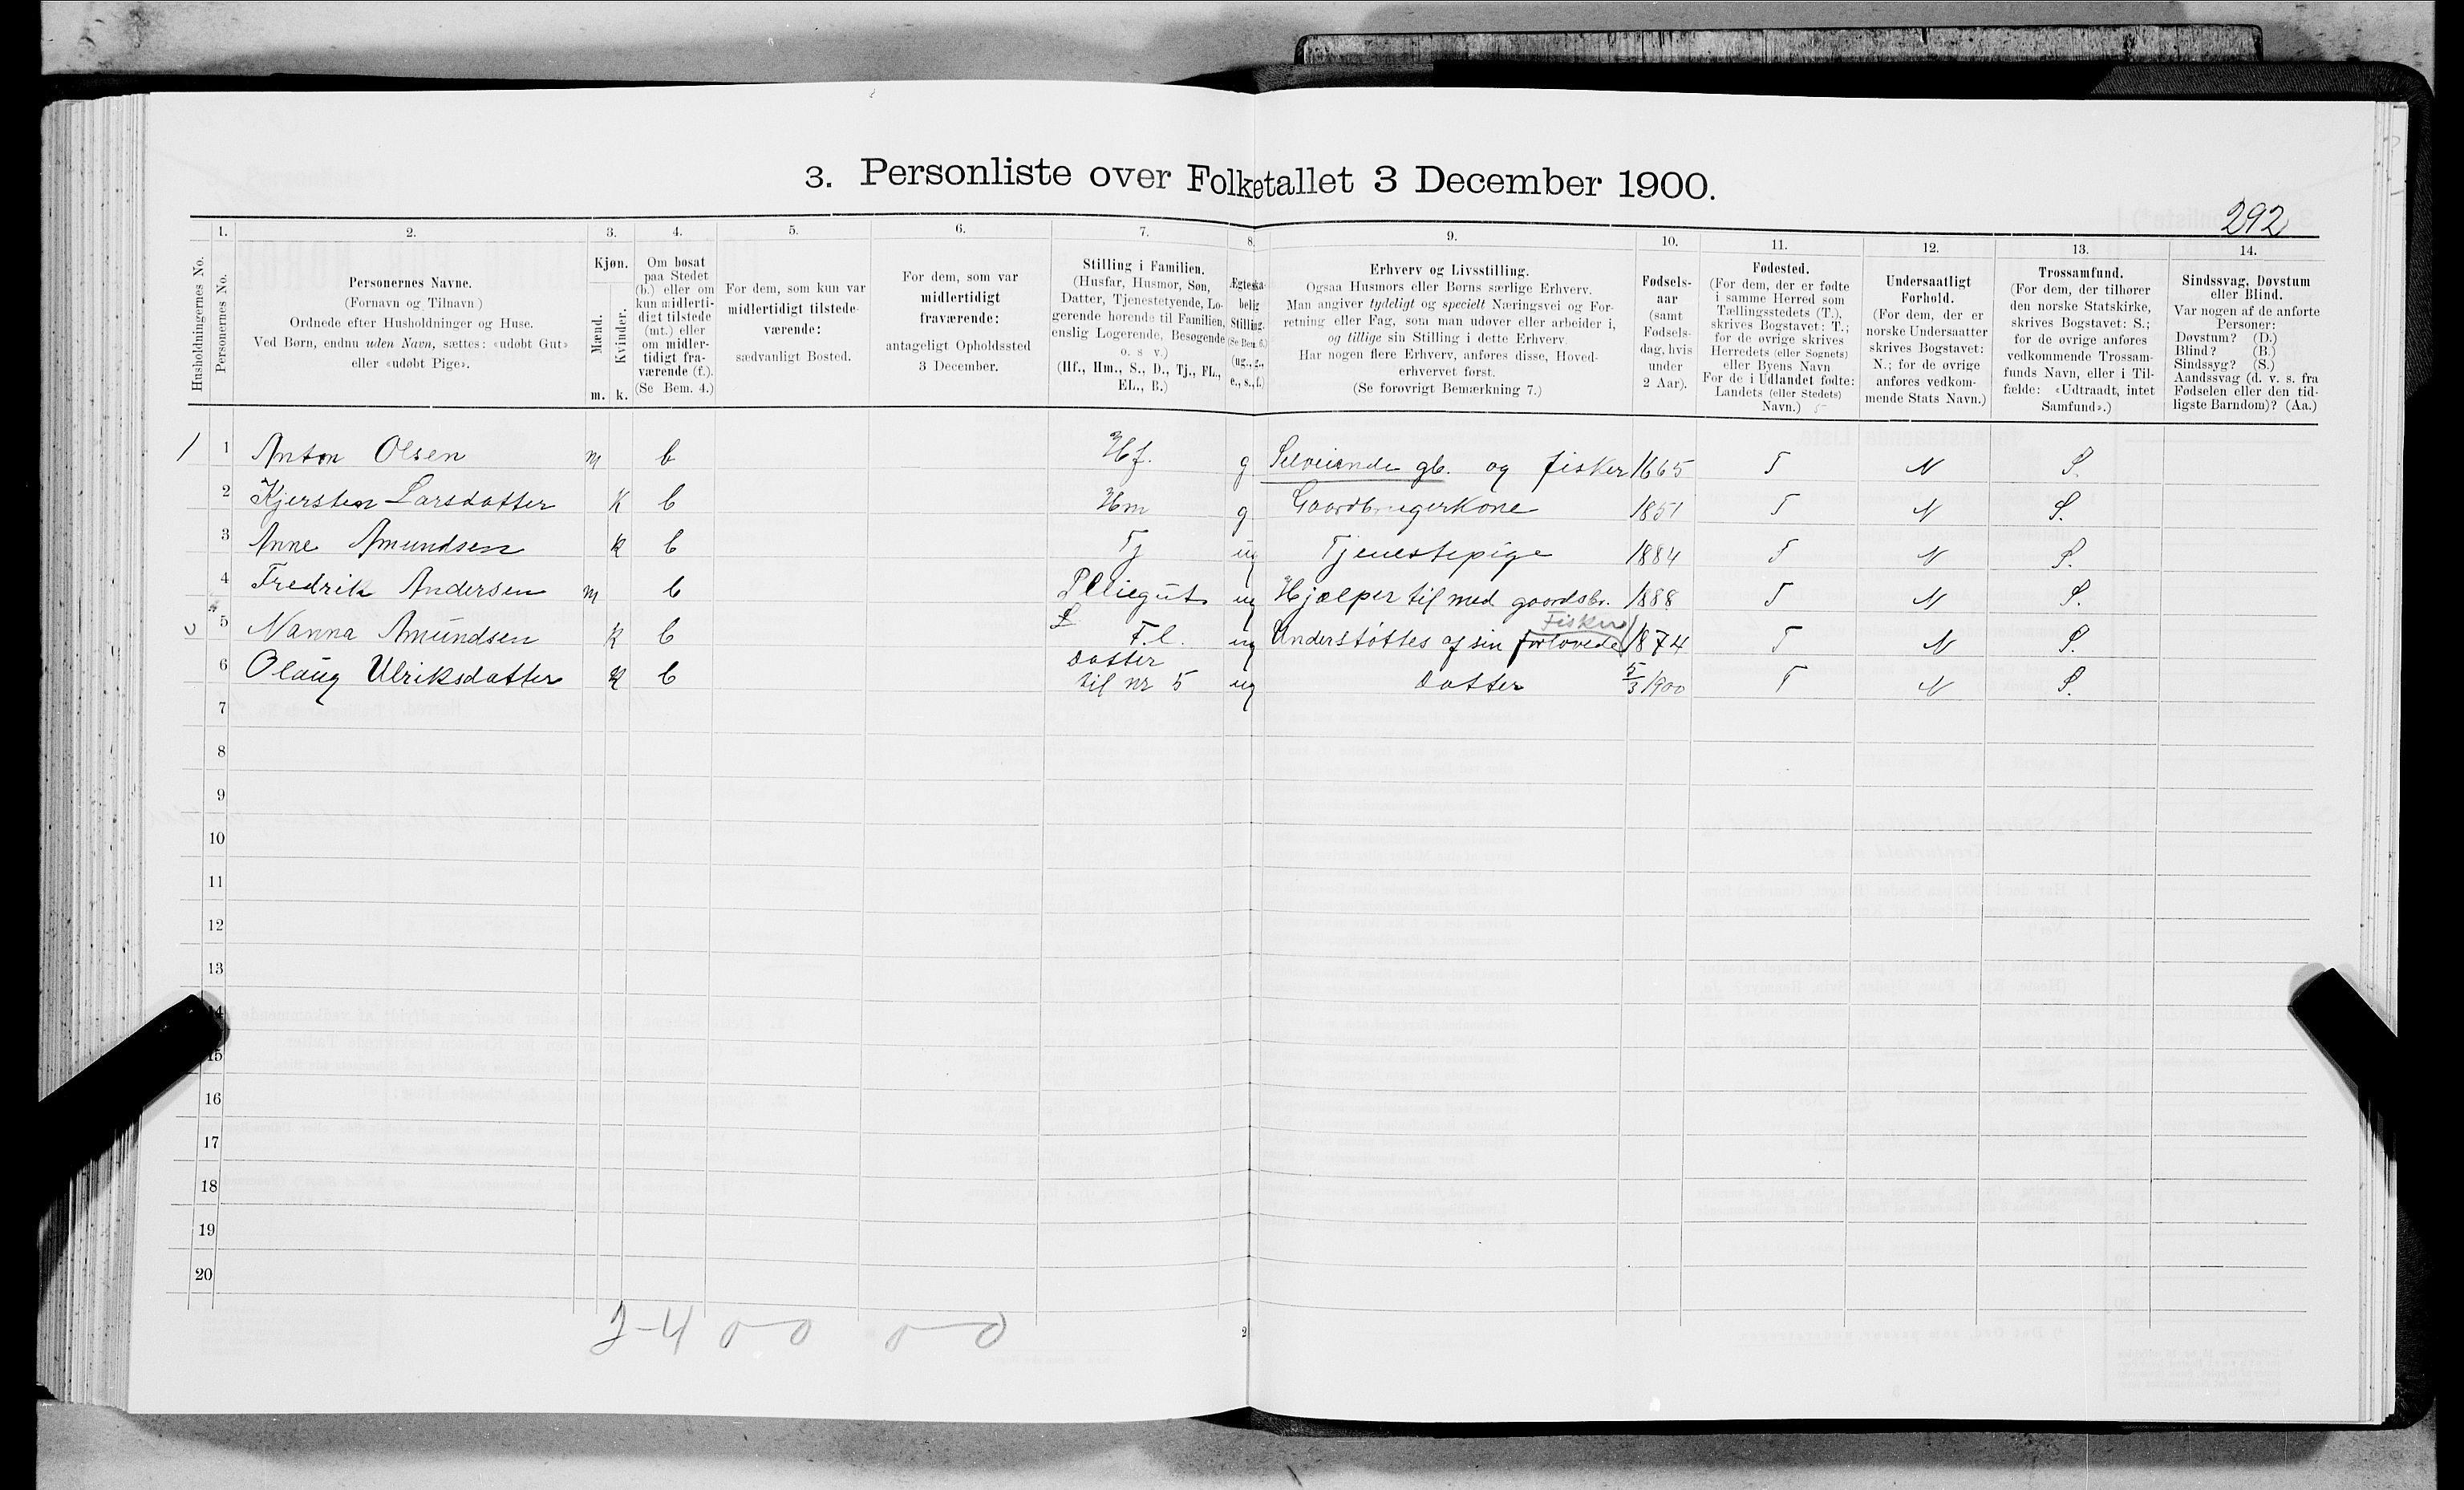 3. Personliste over Folketallet 3 December 1900.
292
1. 2. 3. 4. 5. 6. 7. 8. 9. 10. 11. 12. 13. 14.
Husholdningernes No.
Personernes No.
Personernes Navne.
(Fornavn og Tilnavn)
Ordnede efter Husholdninger og Huse.
Ved Børn, endnu uden Navn, sættes: «udøbt Gut»
eller «udøbt Pige».
Kjøn.
Mænd.
Kvinder.
m. k.
Om bosat
paa Stedet
(b.) eller om
kun midlerti-
digt tilstede
(mt.) eller
om midler-
tidigt fra-
værende (f.).
(Se Bem. 4.)
For dem, som kun var
midlertidigt tilstede-
værende:
sædvanligt Bosted.
For dem, som var
midlertidigt
fraværende:
antageligt Opholdssted
3 December.
Stilling i Familien.
(Husfar, Husmor, Søn,
Datter, Tjenestetyende, Lo-
gerende hørende til Familien,
enslig Logerende, Besøgende
o. s v.)
(Hf., Hm., S., D., Tj., FL.,
EL., B.)
Ægteska-
belig
Stilling.
(Se Bem. 6.)
(ug., g.,
e., s., f.)
Erhverv og Livsstilling.
Ogsaa Husmors eller Børns særlige Erhverv.
Man angiver tydeligt og specielt Næringsvei og For-
retning eller Fag, som man udøver eller arbeider i,
og tillige sin Stilling i dette Erhverv.
Har nogen flere Erhverv, anføres disse, Hoved-
erhvervet først.
(Se forøvrigt Bemærkning 7.)
Fødsels-
aar
(samt
Fødsels-
dag, hvis
under
2 Aar).
Fødested.
(For dem, der er fødte
i samme Herred som
Tællingsstedets (T.),
skrives Bogstavet: T.;
for de øvrige skrives
Herredets (eller Sognets)
eller Byens Navn
For de i Udlandet fødte:
Landets (eller Stedets)
Navn.)
Undersaatligt
Forhold.
(For dem, der er
norske Undersaatter
skrives Bogstavet:
N.; for de øvrige
anføres vedkom-
mende Stats Navn.)
Trossamfund.
(For dem, der tilhører
den norske Statskirke,
skrives Bogstavet: S.;
for de øvrige anføres
vedkommende Trossam-
funds Navn, eller i Til-
fælde: «Udtraadt, intet
Samfund».)
Sindssvag, Døvstum
eller Blind.
Var nogen af de anførte
Personer:
Døvstum? (D.)
Blind? (B.)
Sindssyg? (S.)
Aandssvag (d. v. s. fra
Fødselen eller den tid-
ligste Barndom)? (Aa.)
1 1 Anton Olsen m b Hf. g Selveiende gb. og fisker 1665 T N S.
2 Kjersten Larsdatter K b Hm g Gaardbrugerkone 1851 T N S.
3 Anne Amundsen K b Tj ug Tjenestepige 1884 T N S.
4 Fredrik Andersen m b Pleiegut ug Hjælper til med gaardsbr. 1888 T N S.
Fisker
5 Nanna Amundsen K b F.l. ug Understøttes af sin forlovede 1874 T N S.
datter
6 Olaug Ulriksdatter K b til nr 5 ug datter 5/3 1900 T N S.
7
8
9
10
11
12
13
14
15
16
17
18
19
20
2-4 0-0 0-0
2